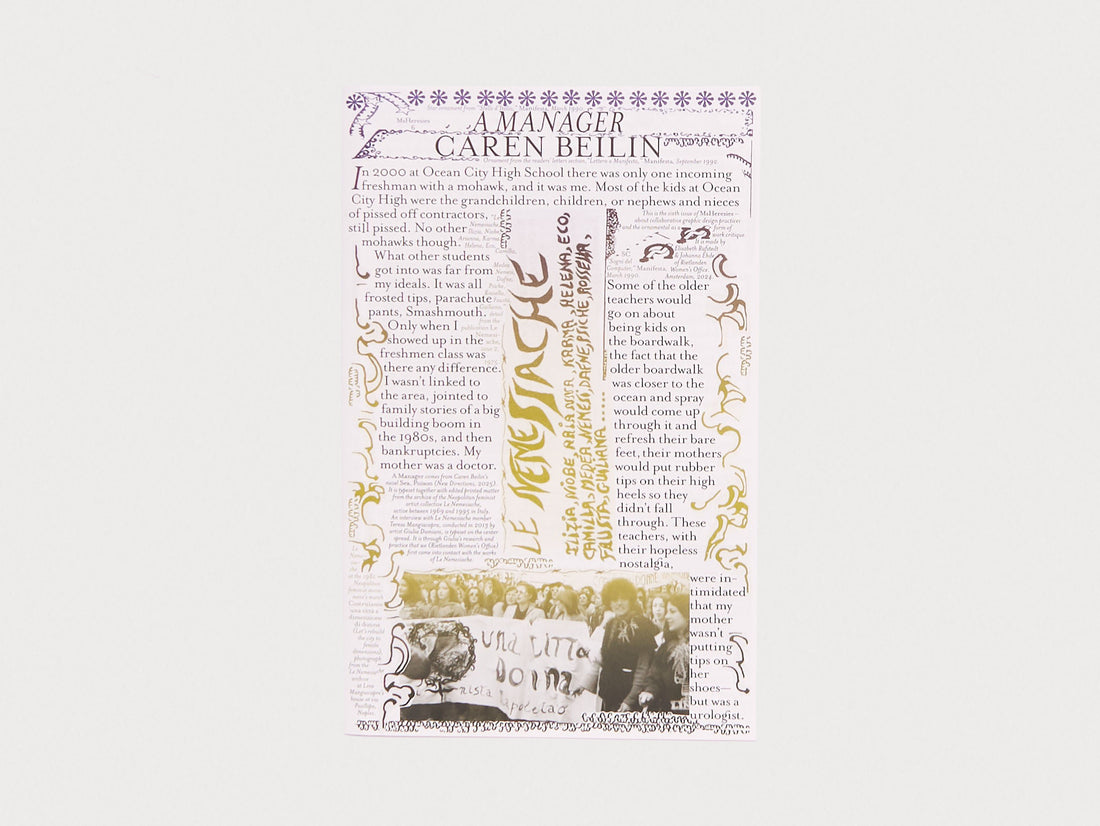 Star ornament from "Mafie d'Italia," Manifesta, March 1990.
MsHeresies 6
A MANAGER
CAREN BEILIN
Ornament from the readers' letters section, "Lettera a Manifesta," Manifesta, September 1992.
In 2000 at Ocean City High School there was only one incoming
freshman with a mohawk, and it was me. Most of the kids at Ocean
City High were the grandchildren, children, or nephews and nieces
of pissed off contractors,
still pissed. No other
mohawks though.
What other students
got into was far from
my ideals. It was all
frosted tips, parachute
pants, Smashmouth.
Only when I
showed up in the
freshmen class was
there any difference.
I wasn't linked to
the area, jointed to
family stories of a big
building boom in
the 1980s, and then
bankruptcies. My
mother was a doctor.
A Manager comes from Caren Beilin's
novel Sea, Poison (New Directions, 2025).
It is typeset together with edited printed matter
from the archive of the Neapolitan feminist
artist collective Le Nemesiache,
active between 1969 and 1995 in Italy.
An interview with Le Nemesiache member
Teresa Mangiacapra, conducted in 2013 by
artist Giulia Damiani, is typeset on the center
spread. It is through Giulia's research and
practice that we (Rietlanden Women's Office)
first came into contact with the works
of Le Nemesiache.
detail
from the
publication Le
Nemesiache,
issue 2,
1975.
LE NEMESIACHE
ILIZIA, NIOBE, ARIANNA, KARMA, HELENA, ECO,
CAMILLA, MEDEA, NEMESI, DAFNE, PSICHE, ROSSEUR,
FAUSTA, GIULIANA .....
This is the sixth issue of MsHeresies—
about collaborative graphic design practice
and the ornamental as a form of
work critique.
It is made by
Elisabeth Rafstedt
& Johanna Ehde
of Rietlanden
Women's Office.
Amsterdam, 2024.
Sogni del
Computer," Manifesta,
March 1990.
Some of the older
teachers would
go on about
being kids on
the boardwalk,
the fact that the
older boardwalk
was closer to the
ocean and spray
would come up
through it and
refresh their bare
feet, their mothers
would put rubber
tips on their high
heels so they
didn't fall
through. These
teachers, with
their hopeless
nostalgia,
were in-
timidated
that my
mother
wasn't
putting
tips on
her
shoes—
but was a
urologist.
at the 1981
Neapolitan
feminist move-
ment's march
Costruiamo
una città a
dimensione
di donna
(Let's rebuild
the city to
female
dimensions),
photograph
from the
Le Nemesiache
archive
at Lina
Mangiacapra's
house in via
Posillipo,
Naples.
UNA CITTA
DOINA
nista
apoletao